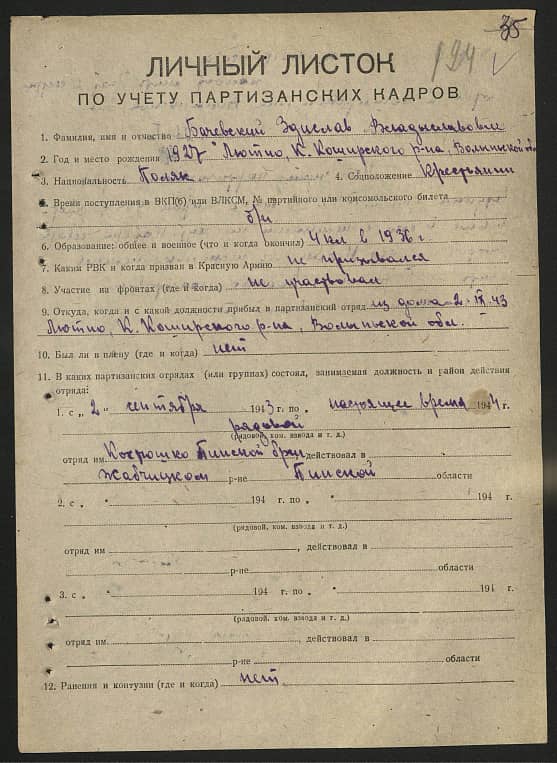 35
194
ЛИЧНЫЙ ЛИСТОК
ПО УЧЕТУ ПАРТИЗАНСКИХ КАДРОВ
1. Фамилия, имя и отчество Бачевский Здислав Владыславович
2. Год и место рождения 1927 Лютно, К. Коширского р-на, Волынской об
3. Национальность Поляк 4. Соцположение Крестьянин
5. Время поступления в ВКП(б) или ВЛКСМ, № партийного или комсомольского билета
б/п
6. Образование: общее и военное (что и когда окончил) 4 кл в 1936 г
7. Каким РВК и когда призван в Красную Армию не призывался
8. Участие на фронтах (где и когда) не участвовал
9. Откуда, когда и с какой должности прибыл в партизанский отряд из дома 2. IX 43
Лютно, К. Коширского р-на, Волыньской обл.
10. Был ли в плену (где и когда) нет
11. В каких партизанских отрядах (или группах) состоял, занимаемая должность и район действия
отряда:
1. с „ 2 " сентября 1943 г. по настоящее время 1944 г.
рядовой
(рядовой, ком. взвода и т. д.)
отряд им Пинской бриг действовал в
Жабчицком р-не Пинской области
2. с „ " 194 г. по " 194 г.
(рядовой, ком. взвода и т. д.)
отряд им , действовал в
р-не области
3. с „ " 194 г. по " 194 г.
(рядовой, ком. взвода и т. д.)
отряд им , действовал в
р-не области
12. Ранения и контузии (где и когда) нет